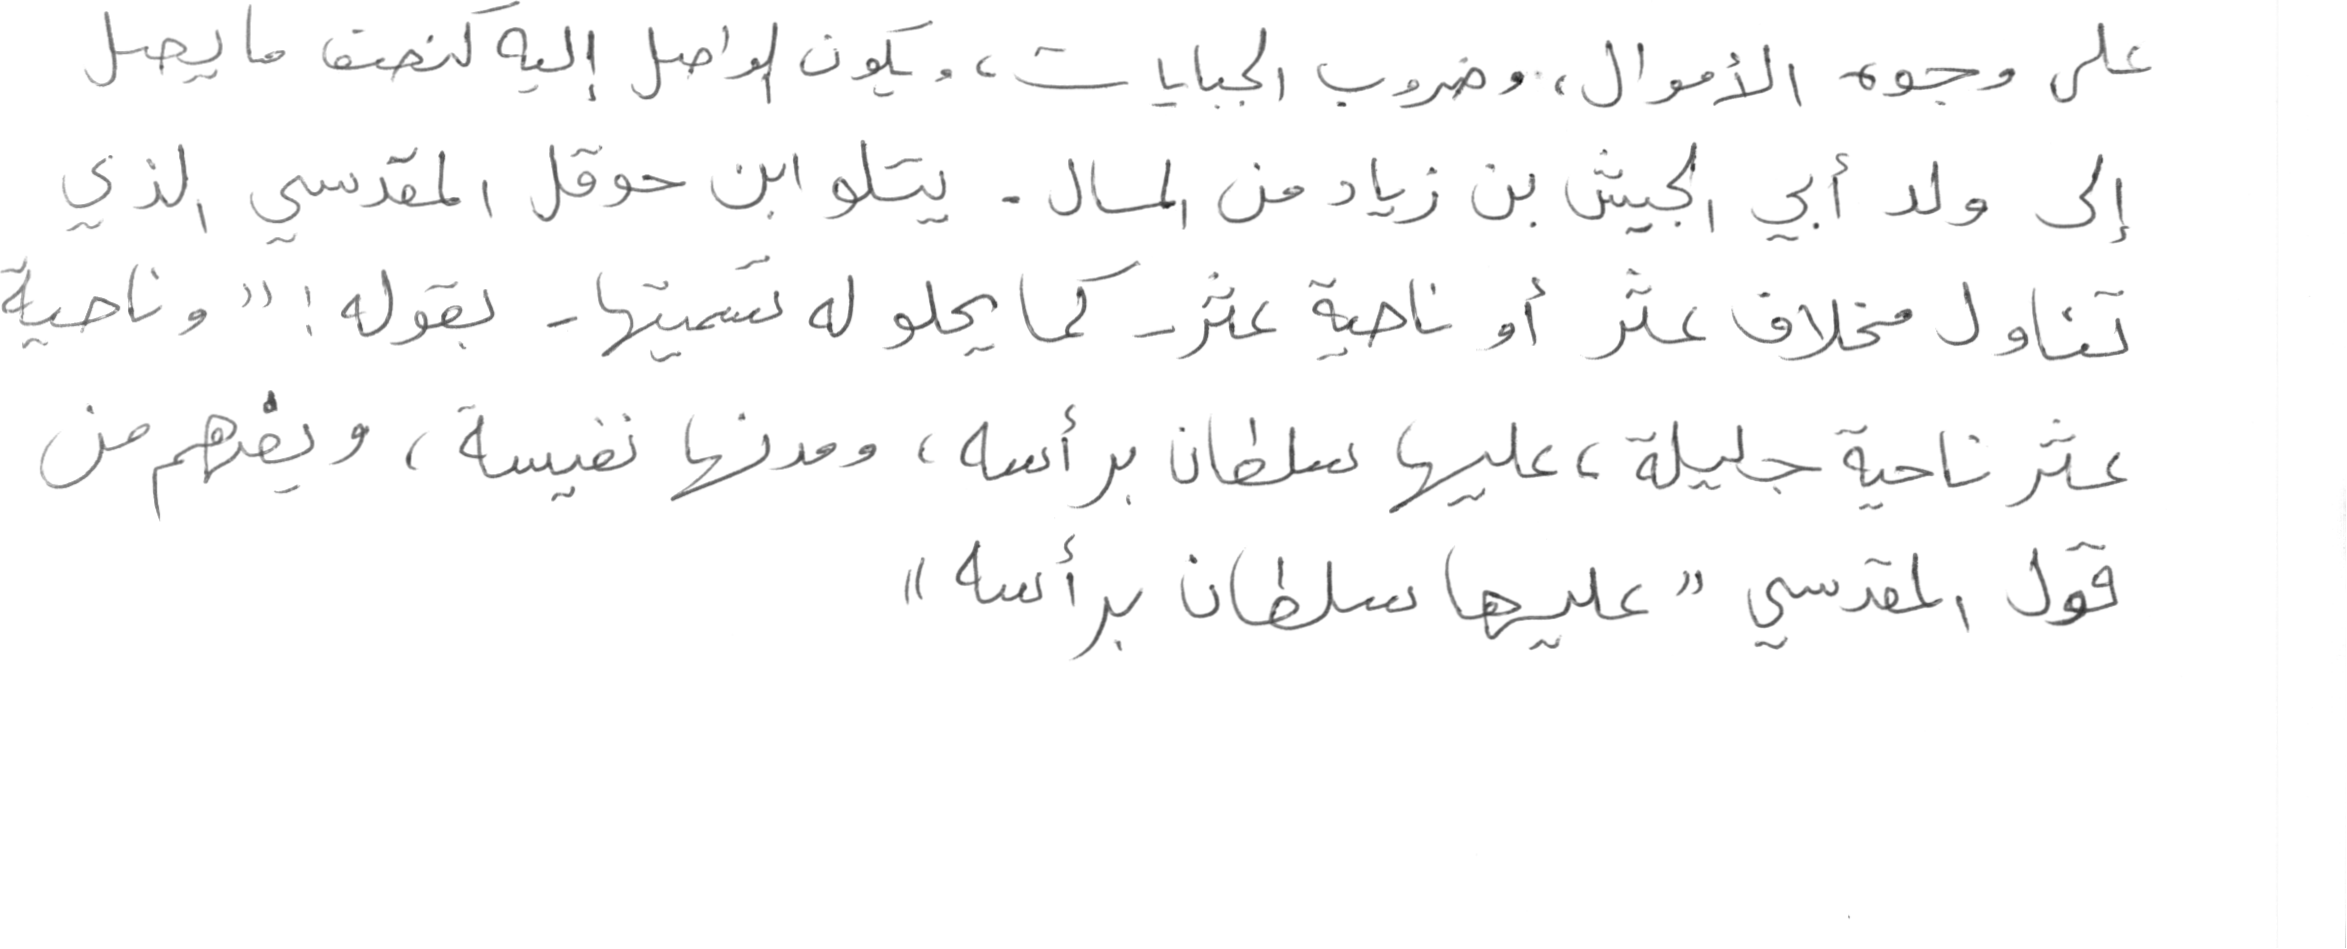 على وجوه الأموال، وضروب الجبايات، ويكون الواصل إليه كنصف ما يصل
إلى ولد أبي الجيش بن زياد من المال. يتلو ابن حوقل المقدسي الذي
تناول مخلاف عثر أو ناحية عثر - كما يحلو له تسميتها - بقوله: "وناحية
عثر ناحية جليلة، عليها سلطان برأسه، ومدنها نفيسة، ويفهم من
قول المقدسي "عليها سلطان برأسه"